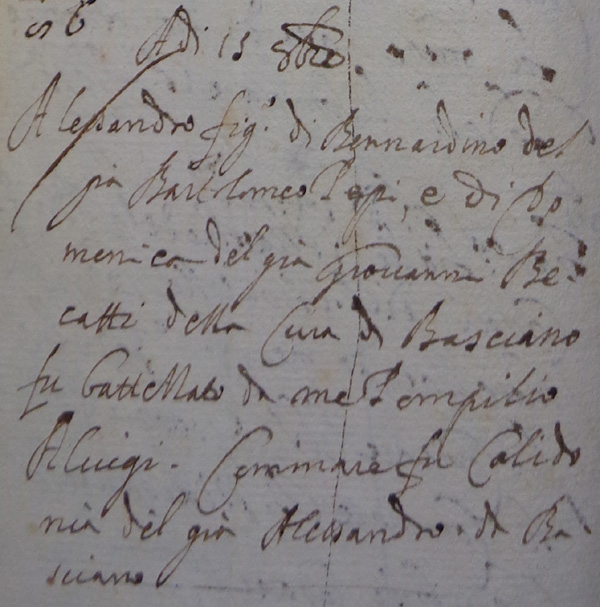 Adi 13 8bre
Alessandro fig.º di Bernardino del
già Bartolomeo Pepi, e di Do
menica del già Giovanni Be-
catti della Cura di Basciano
fu battezzato da me Pompilio
Aluigi. Commare fu Calido
nia del già Alessandro da Ba-
sciano